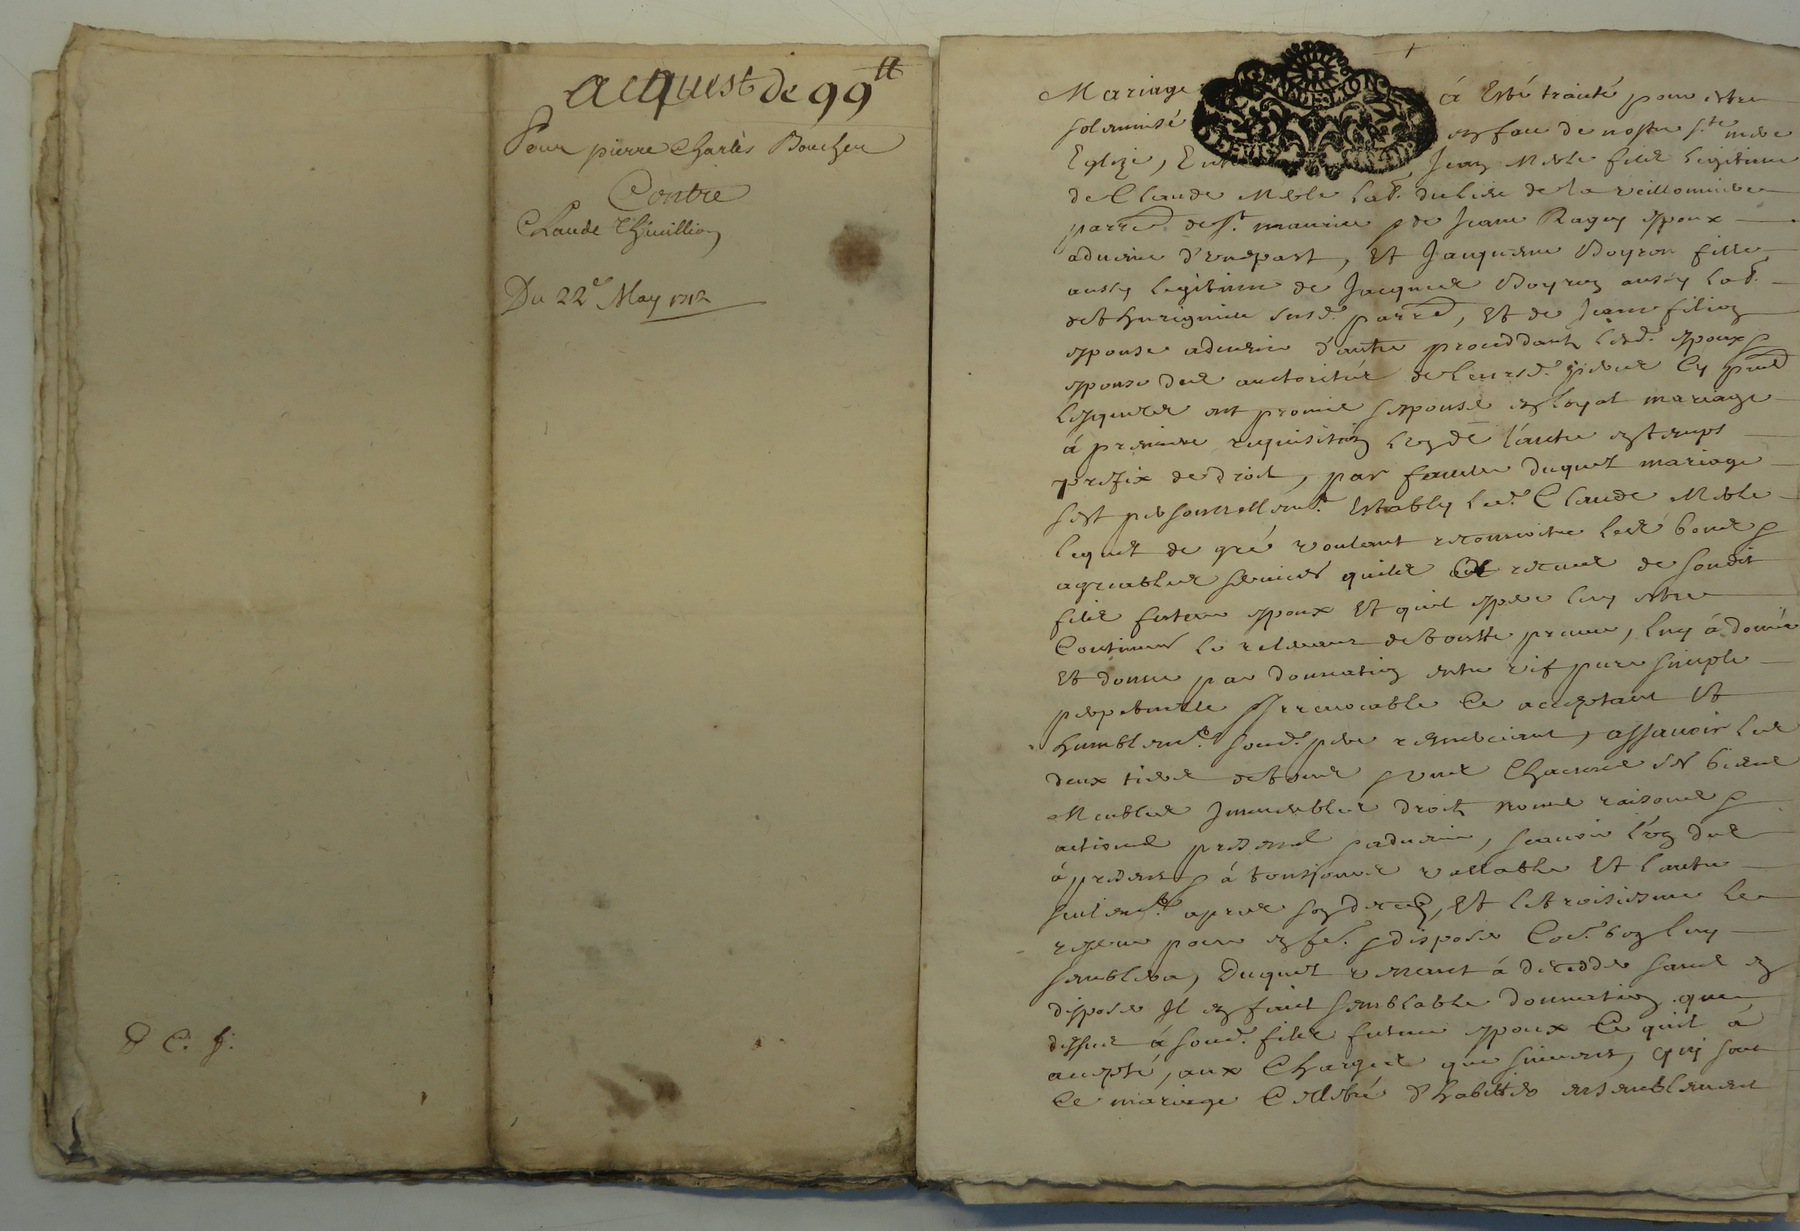 acquest de 99 tt
Pour pierre Charles Boucher
Contre
Claude Thivillion
Du 22e May 1712
Mariage à Esté traité pour estre
solemnisé en face de nostre Ste mere
Eglize, Entre Jean Mesle filz legitime
de Claude Mesle lab. du lieu de la
parre de St. maurice & de Jeane Raguy espoux
advenir d'unepart, Et Jacquême Boyron fille
aussy legitime de Jacques Boyron aussy lab.
susd. parre, Et de Jeane filion
espouse advenir d'autre proceddantz lesd. espoux &
espouse des auctorités de leursd. peres Cy pntz
lesquelz ont promis sespouse en loyal mariage
à premiere requisition l'un de l'autre en temps
prefix de droit, par faveur duquel mariage
sest personnellemt. Estably led. Claude Mesle
lequel de gré voulant recognoitre les bons &
agreables services quila receus de sondit
filz futeur espoux Et quil espere luy estre
Continués le relevant de toutte preuve, luy à donné
Et donne par donnation entre vif pure simple
perpetuelle & irrevocable Ce acceptant Et
humblemt. sond. pere remerciant, assavoir les
deux tiers de tous & uns Chacuns ses biens
Meubles Immeubles droitz noms raisons &
actions presens & advenir, scavoir l'un des
à present & à tousjours vallable Et l'autre
seulemt. apres son decedz, Et le troisiesme le
reserve pour en fe. & disposer Co. bon luy
semblera, Duquel venant à decedder sans en
disposer Il en fait semblable donnation que
dessus à sond. filz futeur espoux Ce quil à
accepté, aux Charges que suivent, quy sont
Ce mariage Cellebré d'habitter ensemblement
P C. f.